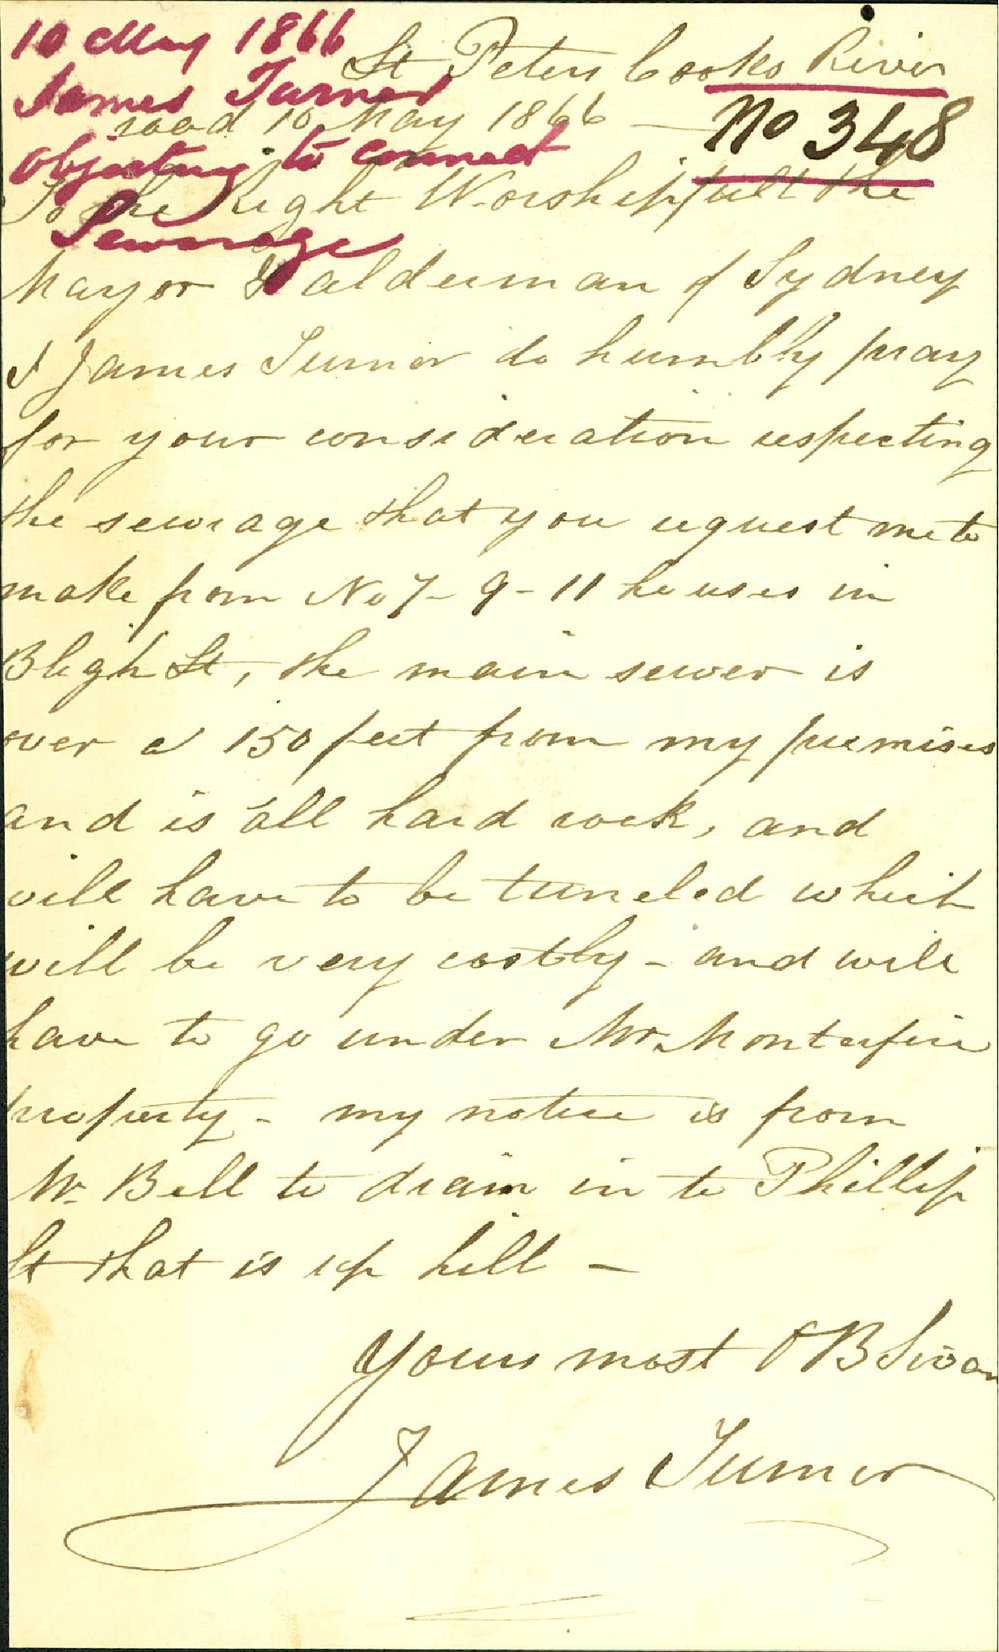 10 May 1866
James Turner
objecting to connect
Sewerage
St Peters Cooks River
road 10 May 1866 —
No 348
To the Right Worshipfull the
Mayor & alderman of Sydney
I James Turner do humbly pray
for your consideration respecting
the sewrage that you request me to
make from No 7 - 9 - 11 houses in
Bligh St, the main sewer is
over a 150 feet from my premises
and is all hard rock, and
will have to be tuneled which
will be very costly - and will
have to go under Mr. Montefiri
property - my notice is from
Mr. Bell to drain in to Phillip
St that is up hill —
Yours most OB Sivan
James Turner